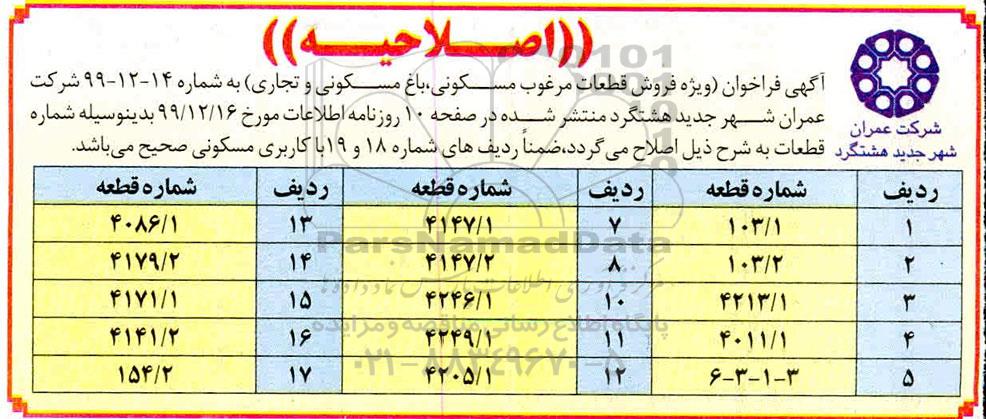 ((اصـلاحیـه))
آگهی فراخوان (ویژه فروش قطعات مرغوب مسکونی،باغ مسکونی و تجاری) به شماره ۱۴-۱۲-۹۹ شرکت
عمران شهر جدید هشتگرد منتشر شده در صفحه ۱۰ روزنامه اطلاعات مورخ ۹۹/۱۲/۱۶ بدینوسیله شماره
قطعات به شرح ذیل اصلاح می گردد،ضمناً ردیف های شماره ۱۸ و ۱۹با کاربری مسکونی صحیح می‌باشد.
شرکت عمران
شهر جدید هشتگرد
ردیف شماره قطعه ردیف شماره قطعه ردیف شماره قطعه
۱ ۱۰۳/۱ ۷ ۴۱۴۷/۱ ۱۳ ۴۰۸۶/۱
۲ ۱۰۳/۲ ۸ ۴۱۴۷/۲ ۱۴ ۴۱۷۹/۲
۳ ۴۲۱۳/۱ ۱۰ ۴۲۴۶/۱ ۱۵ ۴۱۷۱/۱
۴ ۴۰۱۱/۱ ۱۱ ۴۲۴۹/۱ ۱۶ ۴۱۴۱/۲
۵ ۶-۳-۱-۳ ۱۲ ۴۲۰۵/۱ ۱۷ ۱۵۴/۲
ParsNamadData
پایگاه اطلاع رسانی مناقصه و مزایده
۰۲۱-۸۸۳۴۹۶۷۰-۵